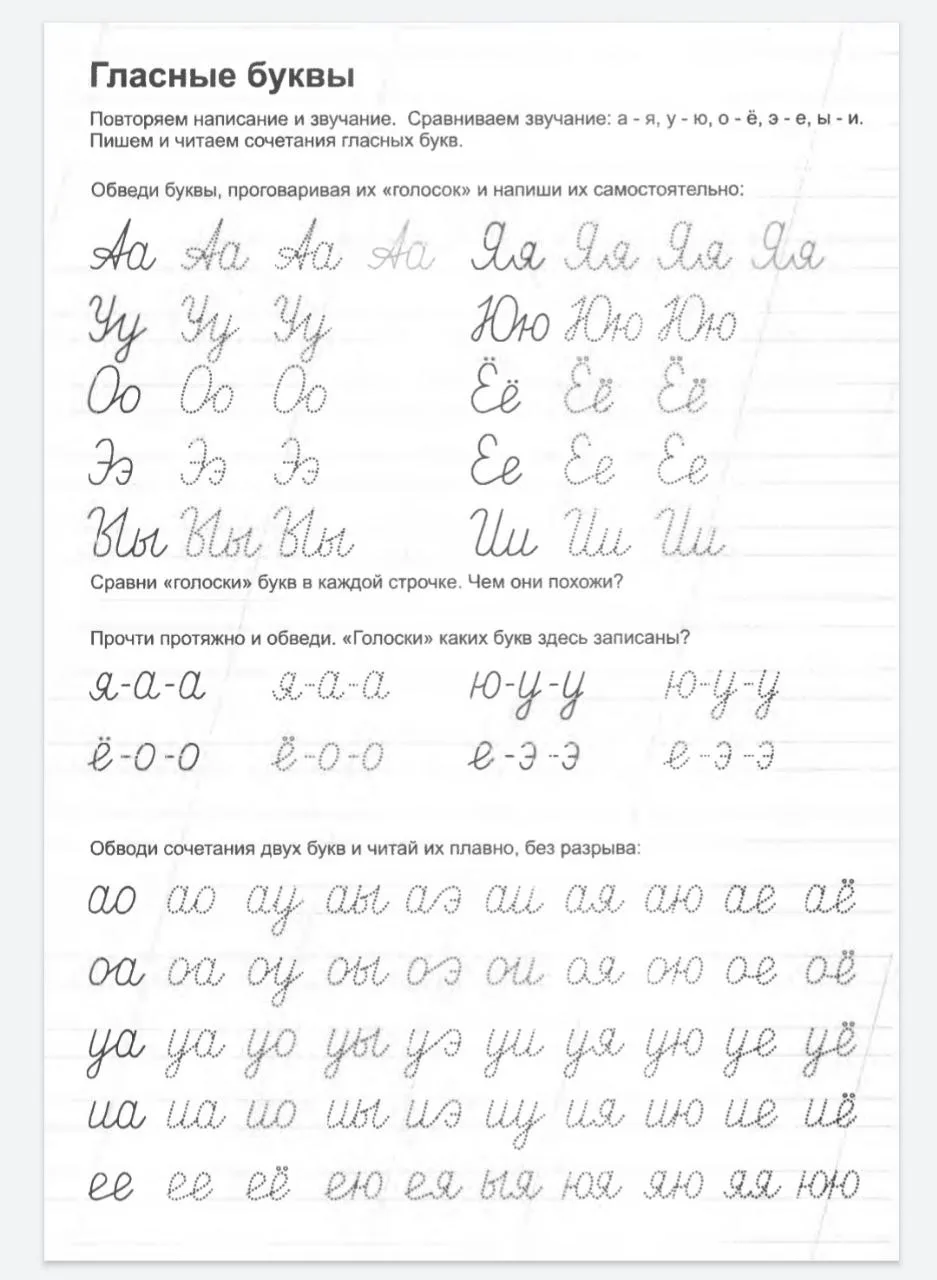 Гласные буквы
Повторяем написание и звучание. Сравниваем звучание: а - я, у - ю, о - ё, э - е, ы - и.
Пишем и читаем сочетания гласных букв.
Обведи буквы, проговаривая их «голосок» и напиши их самостоятельно:
Аа Аа Аа Аа Яя Яя Яя Яя
Уу Уу Уу Юю Юю Юю
Оо Оо Оо Ёё Ёё Ёё
Ээ Ээ Ээ Ее Ее Ее
Ыы Ыы Ыы Ии Ии Ии
Сравни «голоски» букв в каждой строчке. Чем они похожи?
Прочти протяжно и обведи. «Голоски» каких букв здесь записаны?
я-а-а я-а-а ю-у-у ю-у-у
ё-о-о ё-о-о е-э-э е-э-э
Обводи сочетания двух букв и читай их плавно, без разрыва:
ао ао ау аы аэ аи ая аю ае аё
оа оа оу оы оэ ои оя ою ое оё
уа уа уо уы уэ уи уя ую уе уё
иа иа ио иы иэ иу ия ию ие иё
ее ее её ею ея ыя юя яю яя юю